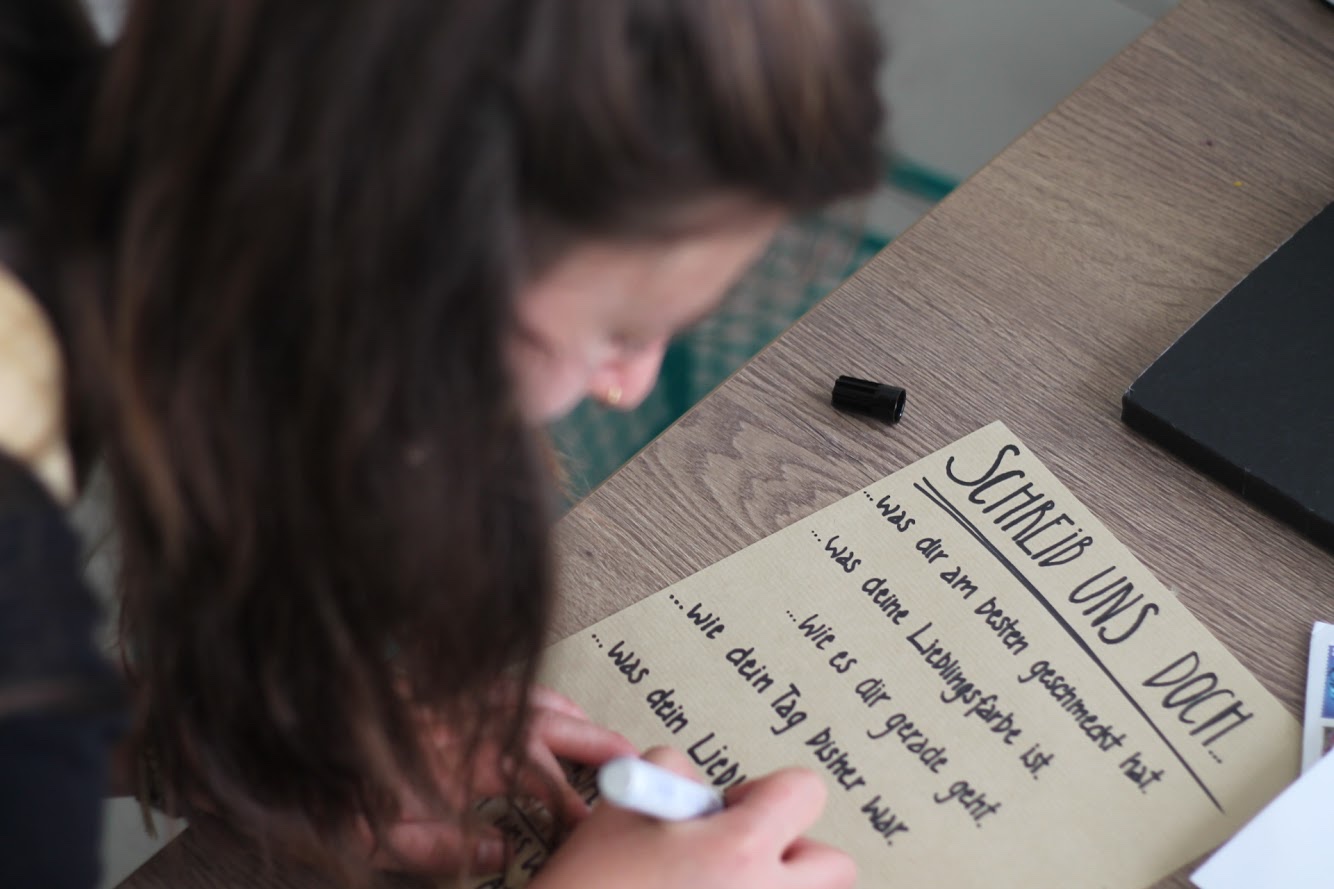 SCHREIB UNS DOCH...
...was dir am besten geschmeckt hat.
...was deine Lieblingsfarbe ist.
...wie es dir gerade geht.
...wie dein Tag bisher war.
...was dein